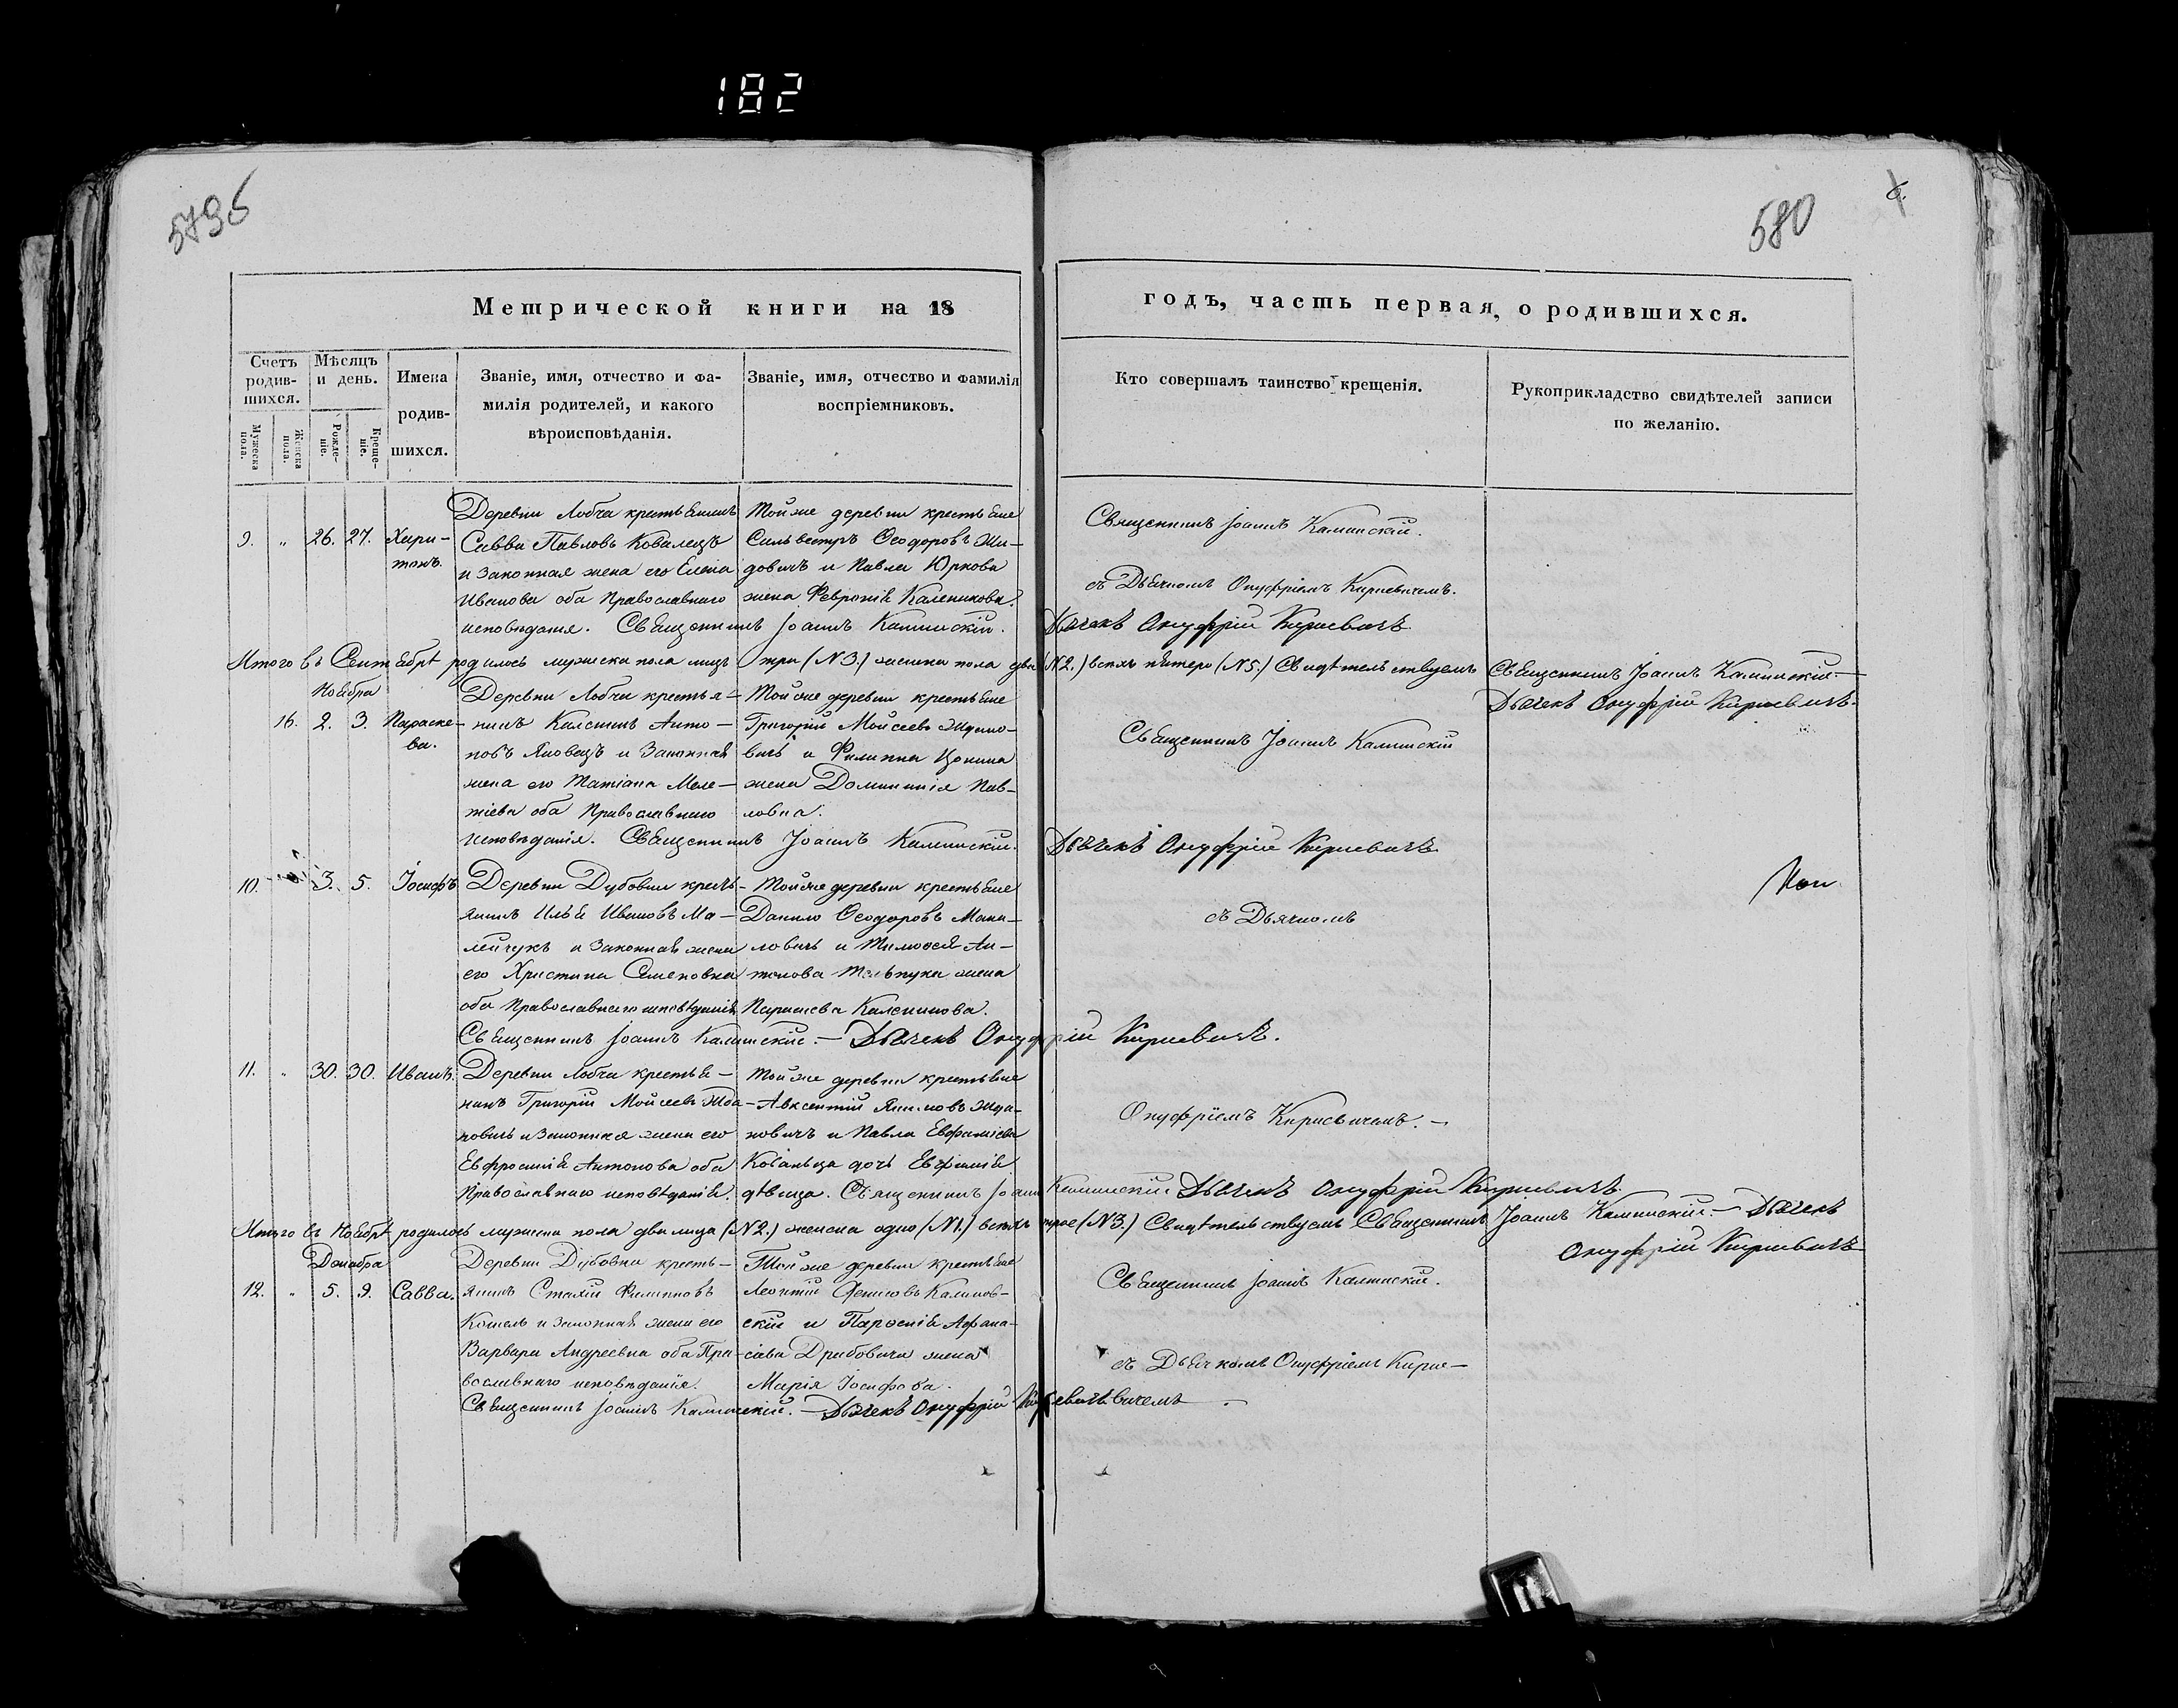 182
579б
580
6.
Метрической книги на 18
годъ, часть первая, о родившихся.
Счетъ родив-шихся.
Мѣсяцъ и день.
Имена родив-шихся.
Званіе, имя, отчество и фа-
милія родителей, и какого
вѣроисповѣданія.
Званіе, имя, отчество и фамилія
воспріемниковъ.
Кто совершалъ таинство крещенія.
Рукоприкладство свидѣтелей записи
по желанію.
Мужеска пола.
Женска пола.
Рожде-ніе.
Креще-ніе.
9. " 26. 27. Хари-тонъ.
Деревни Лобча крестьянинъ
Савва Павловъ Ковалецъ
и законная жена его Елена
Иванова оба Православнаго
исповѣданія. Священникъ Іоаннъ Каминскій.
Тойже деревни крестьяне
Сильвестръ Ѳеодоровъ Жи-
довичъ и Павла Юркова
жена Февронія Каленикова.
Священникъ Іоаннъ Каминскій.
съ Дьячкомъ Онуфріемъ Кириевичемъ.
Дьячекъ Онуфрій Кириевичъ
Итого въ Сентябрѣ родилось мужеска пола лицъ три (N 3.) женска пола два (N 2.) всѣхъ пятеро (N 5.) Свидѣтельствуемъ Священникъ Іоаннъ Каминскій.—
Дьячекъ Онуфрій Кириевичъ.
Ноября
16. 2. 3. Параске-ва.
Деревни Лобчи крестья-
нинъ Калетинъ Анто-
новъ Яновецъ и Законная
жена его Татіана Меле-
тіева оба Православнаго
исповѣданія. Священникъ Іоаннъ Каминскій.
Тойже деревни крестьяне
Григорій Мойсеевъ Ждано-
вичъ и Филиппа Цонина
жена Доминикія Пав-
ловна.
Священникъ Іоаннъ Каминскій
Дьячекъ Онуфрій Кириевичъ
10. 3. 5. Іосифъ
Деревни Дубовни кресть-
янинъ Илья Ивановъ Ма-
лейчукъ и Законная жена
его Христина Семеновна
оба Православнаго исповѣданія
Тойже деревни крестьяне
Данило Ѳеодоровъ Мани-
ловичъ и Тимоѳея Ан-
тонова Тельпука жена
Параскева Каленикова.
съ Дьячкомъ
Священникъ Іоаннъ Каминскій.— Дьячекъ Онуфрій Кириевичъ.
11. " 30. 30. Иванъ.
Деревни Лобча крестья-
нинъ Григорій Мойсеевъ Жда-
новичъ и Законная жена его
Евфросинія Антонова оба
Православнаго исповѣданія.
Тойже деревни крестьяне
Авксентій Якимовъ Жда-
новичъ и Павла Евфиміева
Кованьца дочь Евфимія
дѣвица. Священникъ Іоаннъ Каминскій Дьячекъ Онуфрій Кириевичъ.
Онуфріемъ Кириевичемъ.—
Итого въ Ноябрѣ родилось мужеска пола два лица (N 2.) женска одно (N 1.) всѣхъ трое (N 3.) Свидѣтельствуемъ Священникъ Іоаннъ Каминскій.— Дьячекъ
Онуфрій Кириевичъ
Декабра
12. " 5. 9. Савва.
Деревни Дубовни кресть-
янинъ Стахій Филипповъ
Кошель и законная жена его
Варвара Андреевна оба Пра-
вославнаго исповѣданія.
Тойже деревни крестьяне
Леонтій Денисовъ Калинов-
скій и Парѳенія Афана-
сіева Дрибовича жена
Марія Іосифова.
Священникъ Іоаннъ Каминскій.
съ Дьячкомъ Онуфріемъ Кирие-
вичемъ
Священникъ Іоаннъ Каминскій.— Дьячекъ Онуфрій Кириевичъ